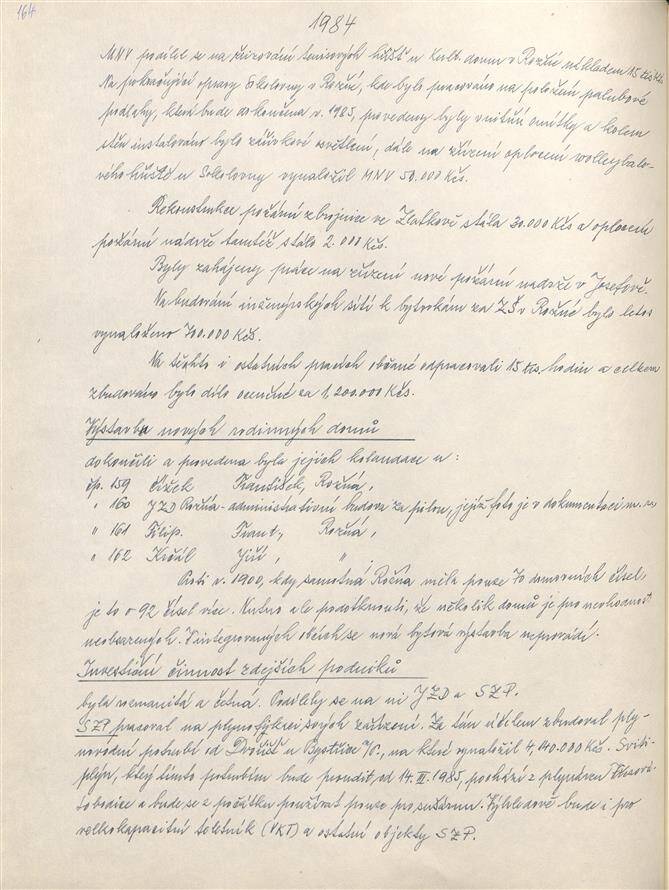 164
1984
MNV podílel se na zřizování tenisových hřišť u kult. domu v Rožné nákladem 15 tis. Kčs.
Na pokračující opravy Sokolovny v Rožné, kde bylo pracováno na položení palubové
podlahy, která bude dokončena r. 1985, provedeny byly vnitřní omítky a kolem
stěn instalováno bylo zářivkové osvětlení, dále na zřízení oplocení wolleybalo-
vého hřiště u Sokolovny vynaložil MNV 50.000 Kčs.
Rekonstrukce požární zbrojnice ve Zlatkově stála 30.000 Kčs a oplocení
požární nádrže tamtéž stálo 2.000 Kčs.
Byly zahájeny práce na zřízení nové požární nádrže v Josefově.
Na budování inženýrských sítí k bytovkám za ZŠ v Rožné bylo letos
vynaloženo 700.000 Kčs.
Na těchto i ostatních pracích občané odpracovali 15 tis. hodin a celkem
zbudováno bylo dílo oceněné za 1,200.000 Kčs.
Výstavba nových rodinných domů
dokončili a provedena byla jejich kolaudace u:
čp. 159 Čížek František, Rožná,
" 160 JZD Rožná - administrativní budova za pilou, jejíž foto je v dokumentaci
" 161 Filip Frant., Rožná,
" 162 Králl Jiří, "
Proti r. 1900, kdy samotná Rožná měla pouze 70 domovních čísel,
je to o 92 čísel více. Nutno ale podotknouti, že několik domů je pro neobydlenost
neobsazených. V integrovaných obcích se nová bytová výstavba neprovádí.
Investiční činnost zdejších podniků
byla rozmanitá a četná. Podílely se na ní JZD a SZP.
SZP pracoval na plynofikaci svých zařízení. Za tím účelem zbudoval ply-
novodní potrubí od Dvořišť u Bystřice n/P., na které vynaložil 4,040.000 Kčs. Svíti-
plyn, který tímto potrubím bude proudit od 14. II. 1985, pochází z plynáren
a bude se z počátku používat pouze pro sušárnu. Výhledově bude i pro
velkokapacitní teletník (VKT) a ostatní objekty SZP.